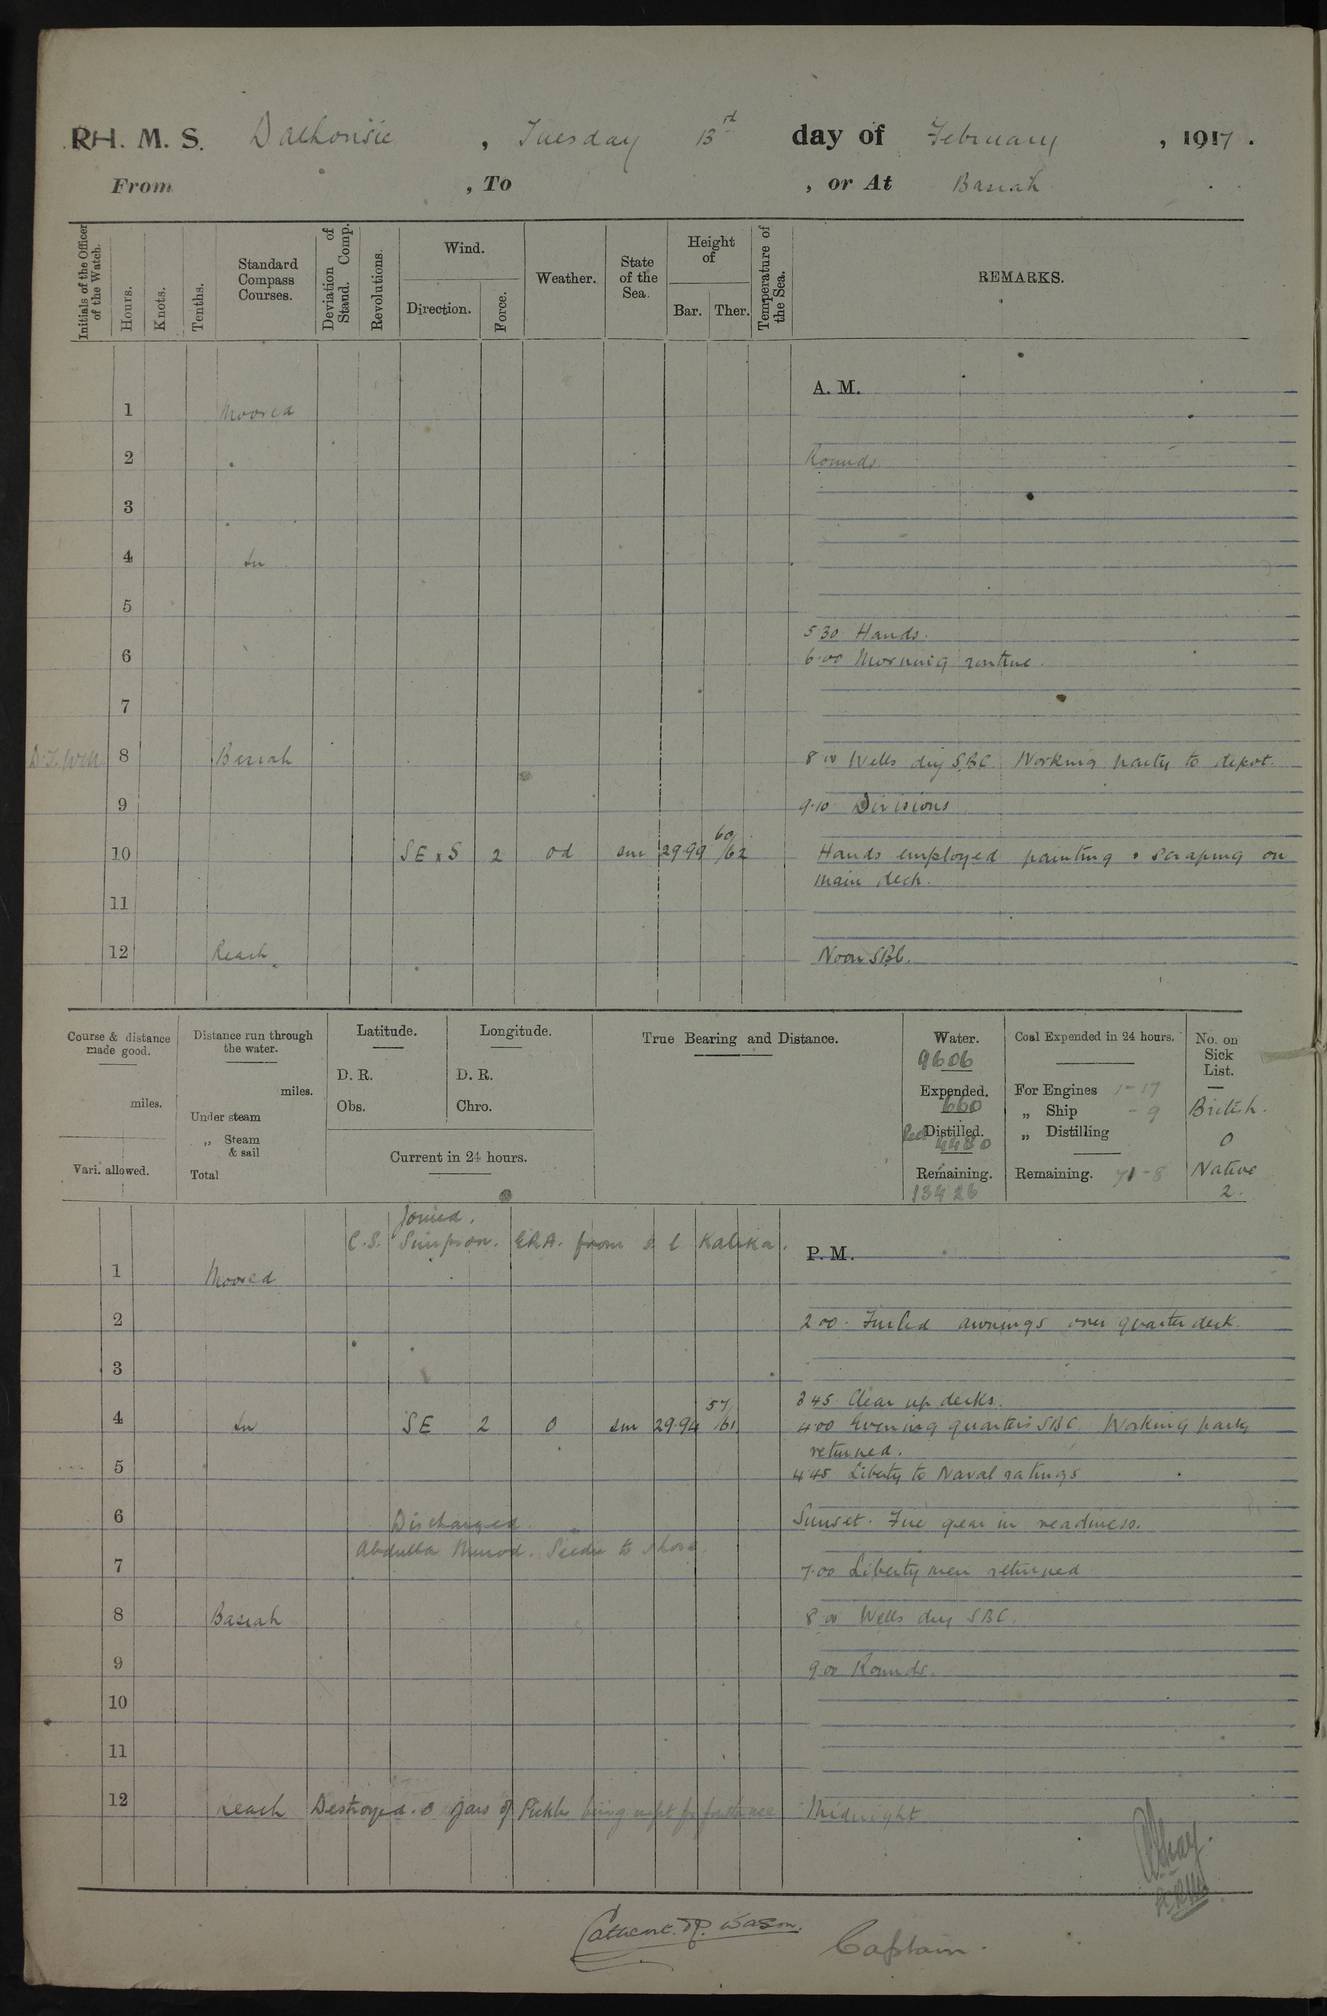 R.H. M. S. Dalhousie , Tuesday 13rd day of February , 1917 .
From , To , or At Basrah
Initials of the Officer of the Watch.
Hours.
Knots.
Tenths.
Standard Compass Courses.
Deviation of Stand. Comp.
Revolutions.
Wind.
Direction.
Force.
Weather.
State of the Sea.
Height of
Bar.
Ther.
Temperature of the Sea.
REMARKS.
A. M.
1 Moored
2 Rounds
3
4 In
5
5 30 Hands.
6 6.00 Morning routine.
7
8 Basrah 8 00 Wells dry SBC Working party to depot.
9 9.10 Divisions
10 SE x S 2 od sm 29.99 60/62 Hands employed painting & scraping on
main deck.
11
12 Reach Noon SBC.
Course & distance made good.
miles.
Vari. allowed.
Distance run through the water.
miles.
Under steam
„ Steam & sail
Total
Latitude.
D. R.
Obs.
Longitude.
D. R.
Chro.
Current in 24 hours.
True Bearing and Distance.
Water.
9606
Expended.
660
Recd Distilled.
4480
Remaining.
13426
Coal Expended in 24 hours.
For Engines 1-17
„ Ship - 9
„ Distilling
Remaining. 71-8
No. on Sick List.
British.
0
Native
2.
Joined.
C.S. Simpson. ERA. from s l Kalika.
P. M.
1 Moored
2 2 00. Furled awnings over quarter deck.
3
3 45 Clear up decks.
4 In SE 2 0 sm 29.94 57/61 4 00 Evening quarters SBC Working party
returned.
5 4 45 Liberty to Naval ratings
6 Discharged Sunset. Fire gear in readiness.
Abdulla Murod. Seedie to shore.
7 7.00 Liberty men returned
8 Basrah 8 00 Wells dry SBC.
9 9 00 Rounds.
10
11
12 Reach Destroyed. 3 jars of Pickles being unfit for Midnight
Cathcart. P. Wason.
Captain.